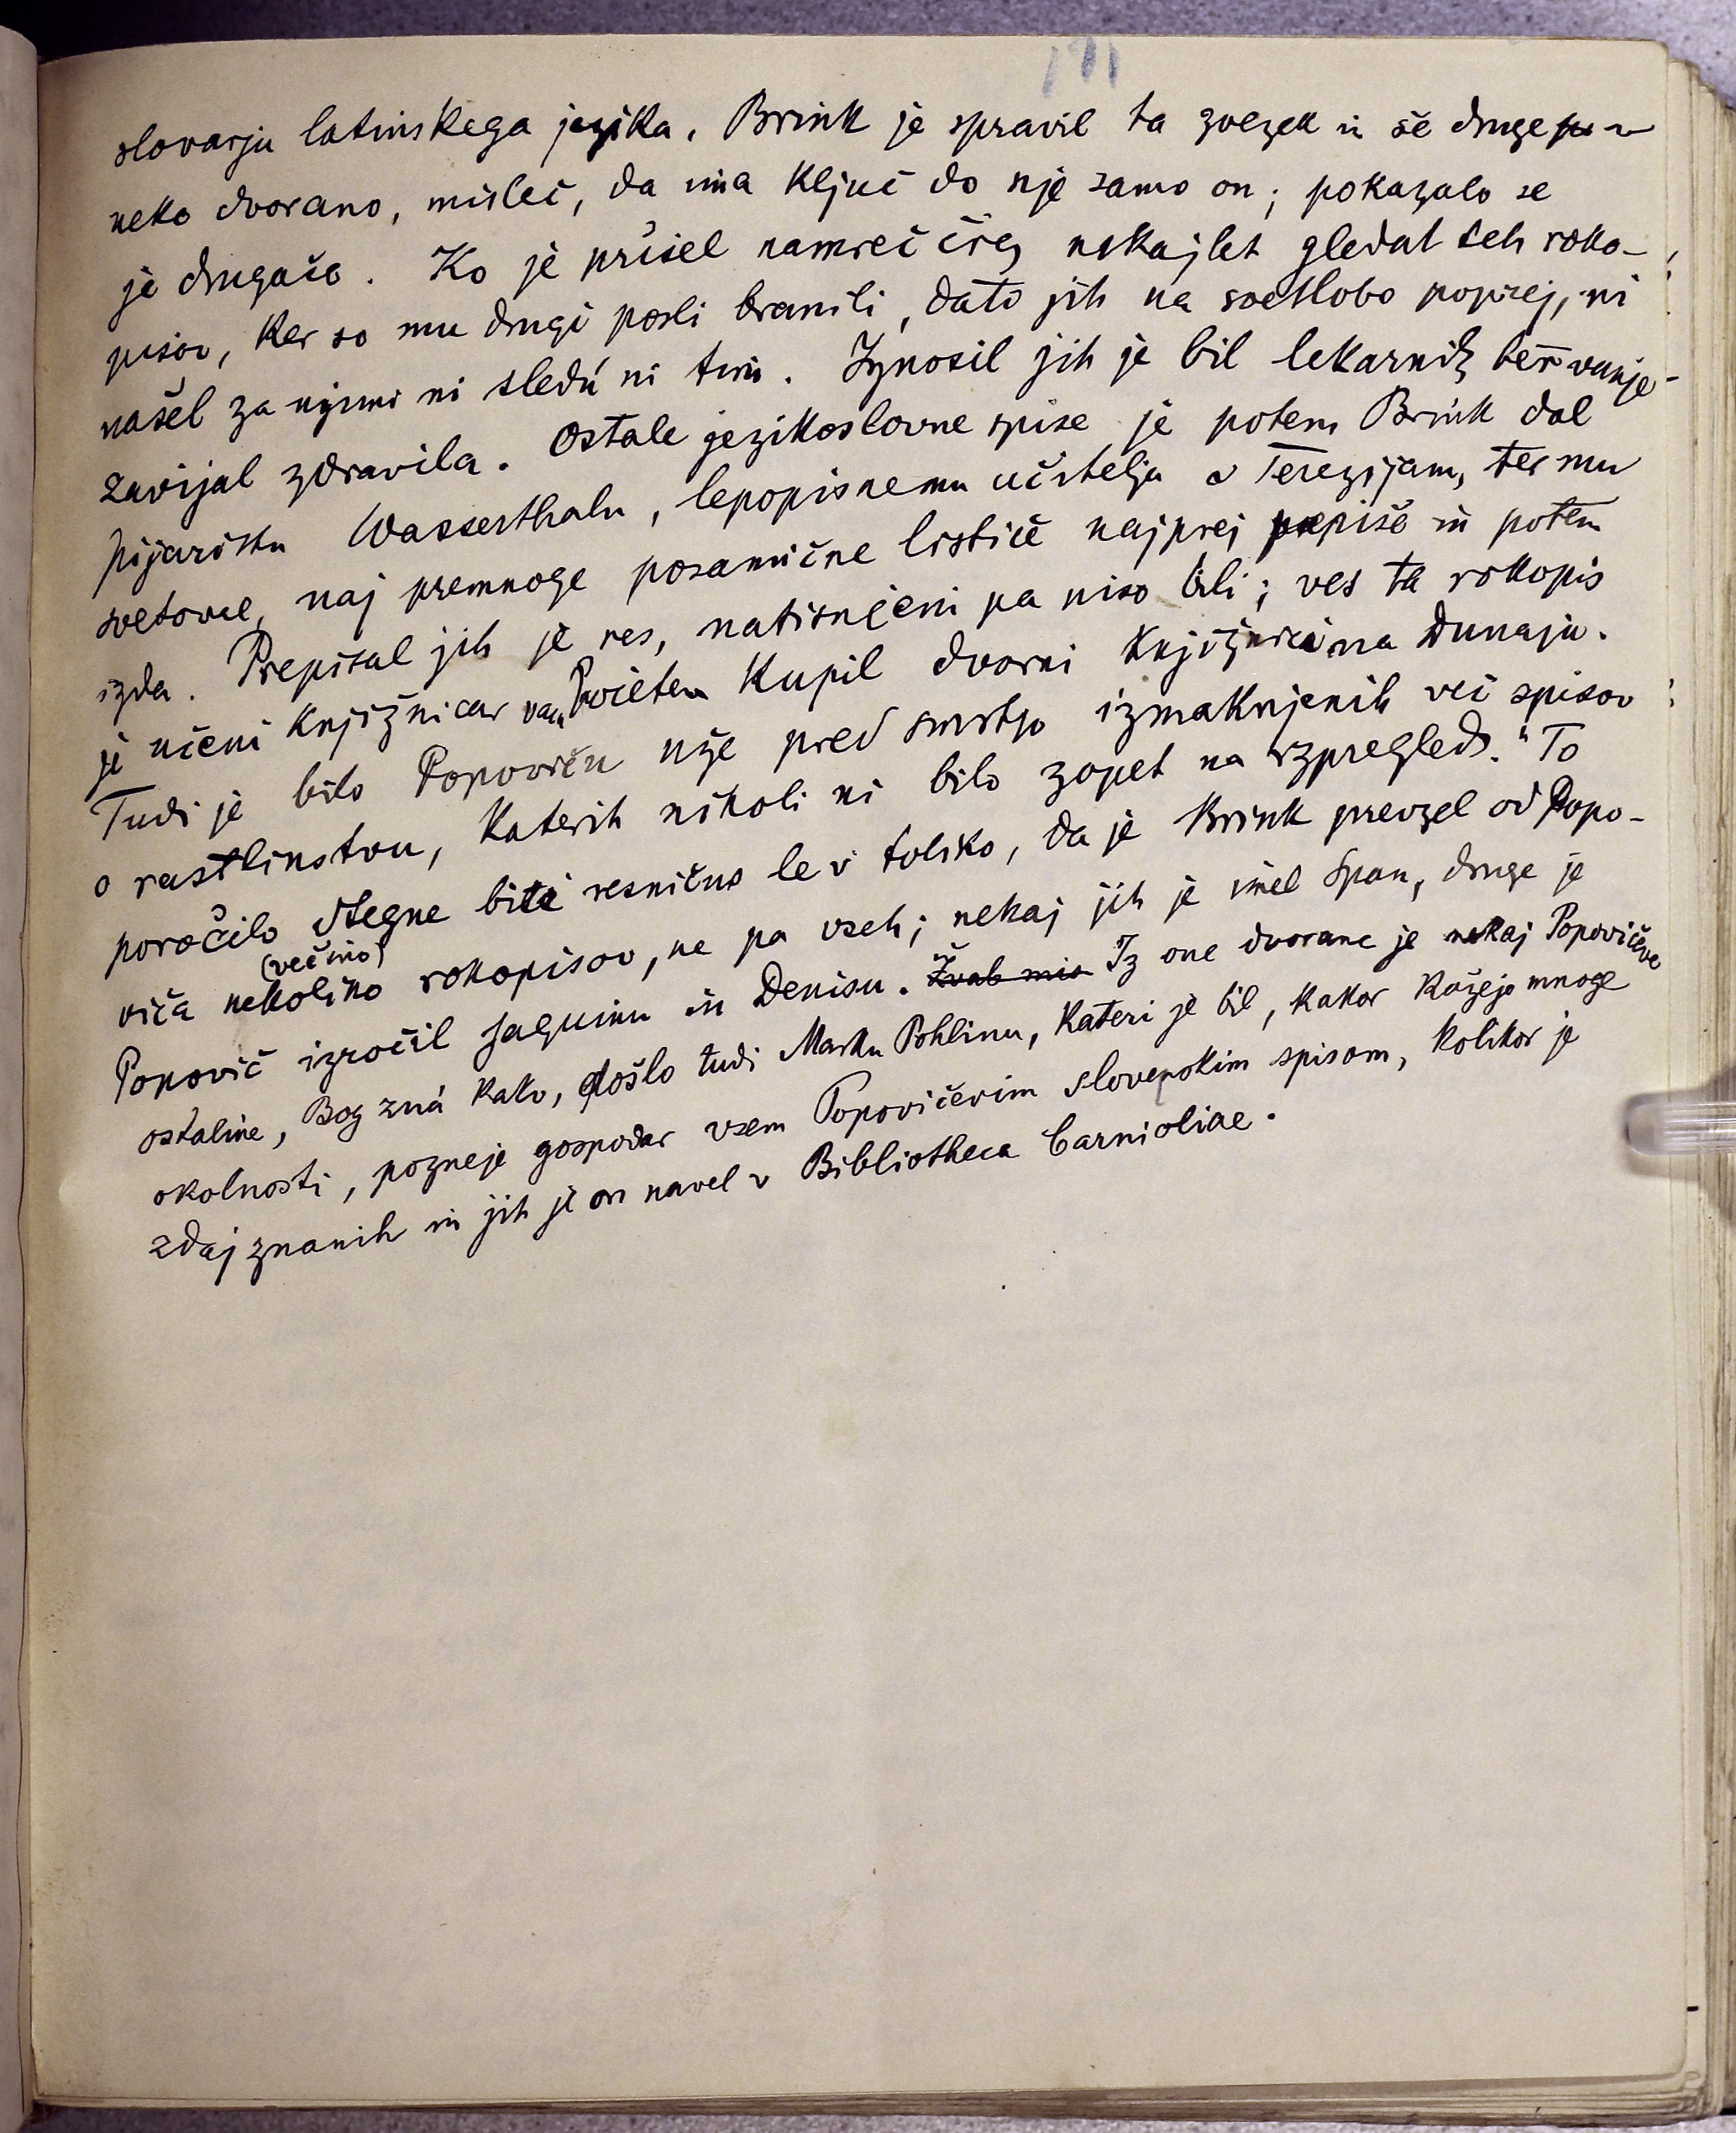 191
slovarju latinskega jezika. Brink je spravil ta zvezek in še druge v
neko dvorano, misleč, da ima ključ do nje samo on; pokazalo se
je drugače. Ko je prišel namreč črez nekaj let gledat teh roko-
pisov, ker so mu drugi posli branili, dati jih na svetlobo poprej, ni
našel za njimi ni sledú ni tiru. Iznosil jih je bil lekarnik ter vanje
zavijal zdravila. Ostale jezikoslovne spise je potem Brink dal
pijaristu Wasserthalu, lepopisnemu učitelju v Terezijani, ter mu
svetoval, naj premnoge posamične lističe najprej prepiše in potem
izda. Prepisal jih je res, natisnjeni pa niso bili; ves ta rokopis
je učeni knjižničar van Swieten kupil dvorni knjižnici na Dunaju.
Tudi je bilo Popoviču uže pred smrtjo izmaknjenih več spisov
o rastlinstvu, katerih nikoli ni bilo zopet na izpregled." To
poročilo utegne biti resnično le v toliko, da je Brink prevzel od Popo-
viča nekoliko (večino) rokopisov, ne pa vseh; nekaj jih je imel Span, druge je
Popovič izročil Jaquinu in Denisu. Iz one dvorane je nekaj Popovičeve
ostaline, Bog zná kako, došlo tudi Marku Pohlinu, kateri je bil, kakor kažejo mnoge
okolnosti, pozneje gospodar vsem Popovičevim slovenskim spisom, kolikor je
zdaj znanih in jih je on navel v Bibliotheca Carnioliae.